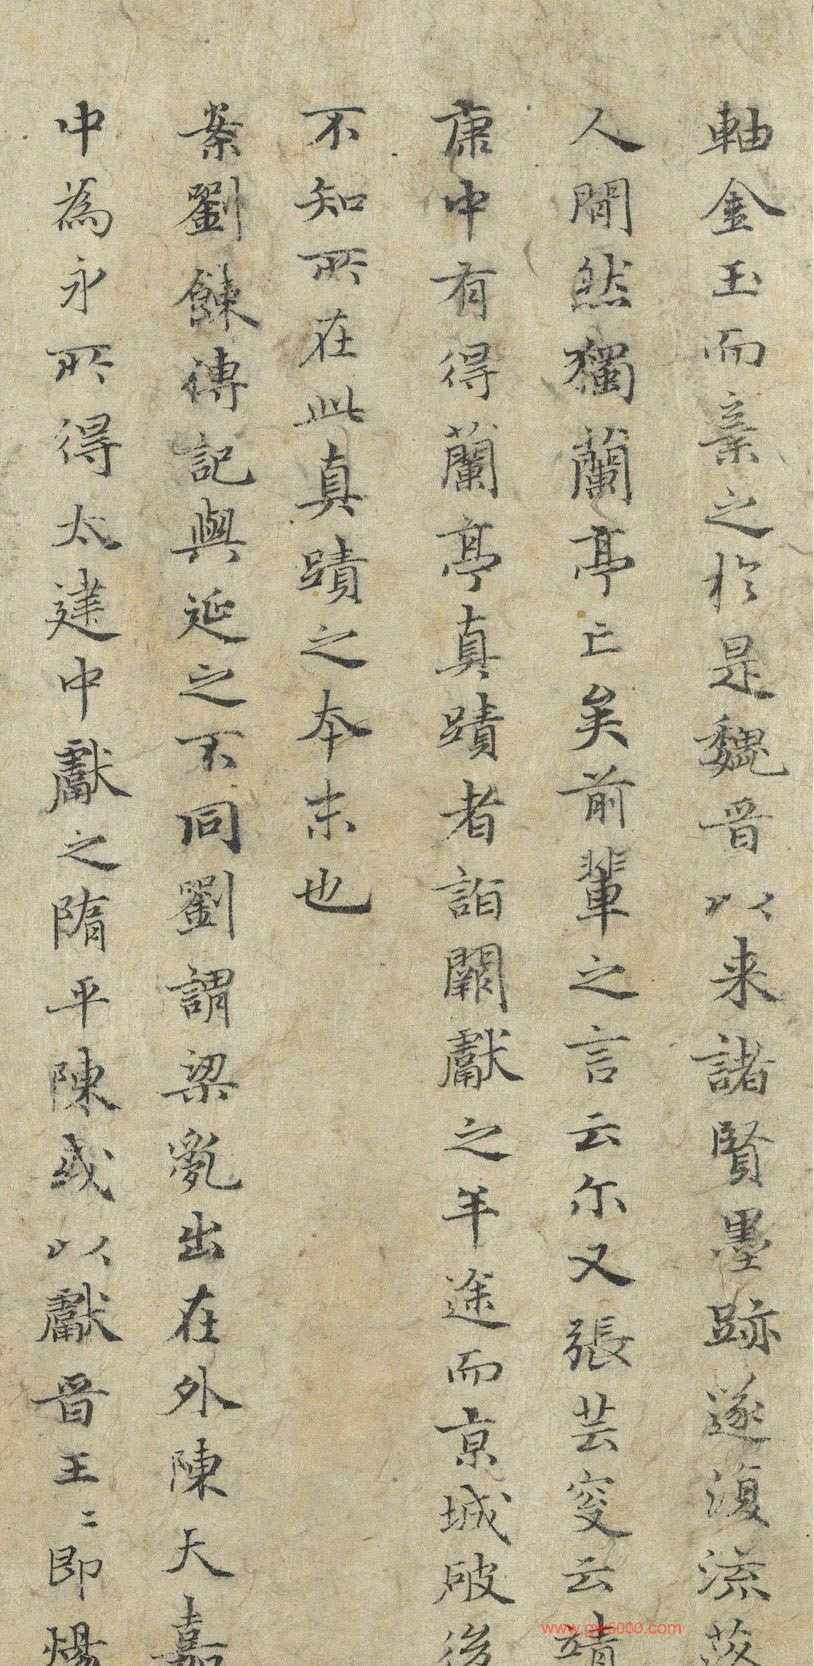 軸金玉而棄之於是魏晉以来諸賢墨跡遂復流落
人間然獨蘭亭亡矣前輩之言云尔又張芸叟云靖
康中有得蘭亭真蹟者詣闕獻之半途而京城破後
不知所在此真蹟之本末也
案劉餗傳記與延之不同劉謂梁亂出在外陳天嘉
中為永所得太建中獻之隋平陳或以獻晉王〻即煬
www.gw5000.com